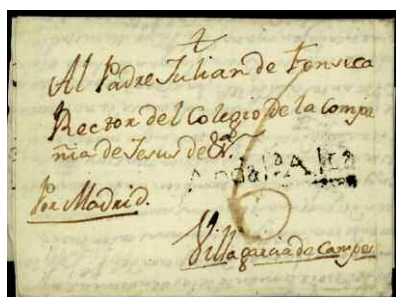 Al Padre Julian de Fonseca
Rector del Colegio de la Compa
ñia de Jesus de
Por Madrid.
Villagarcia de Campos